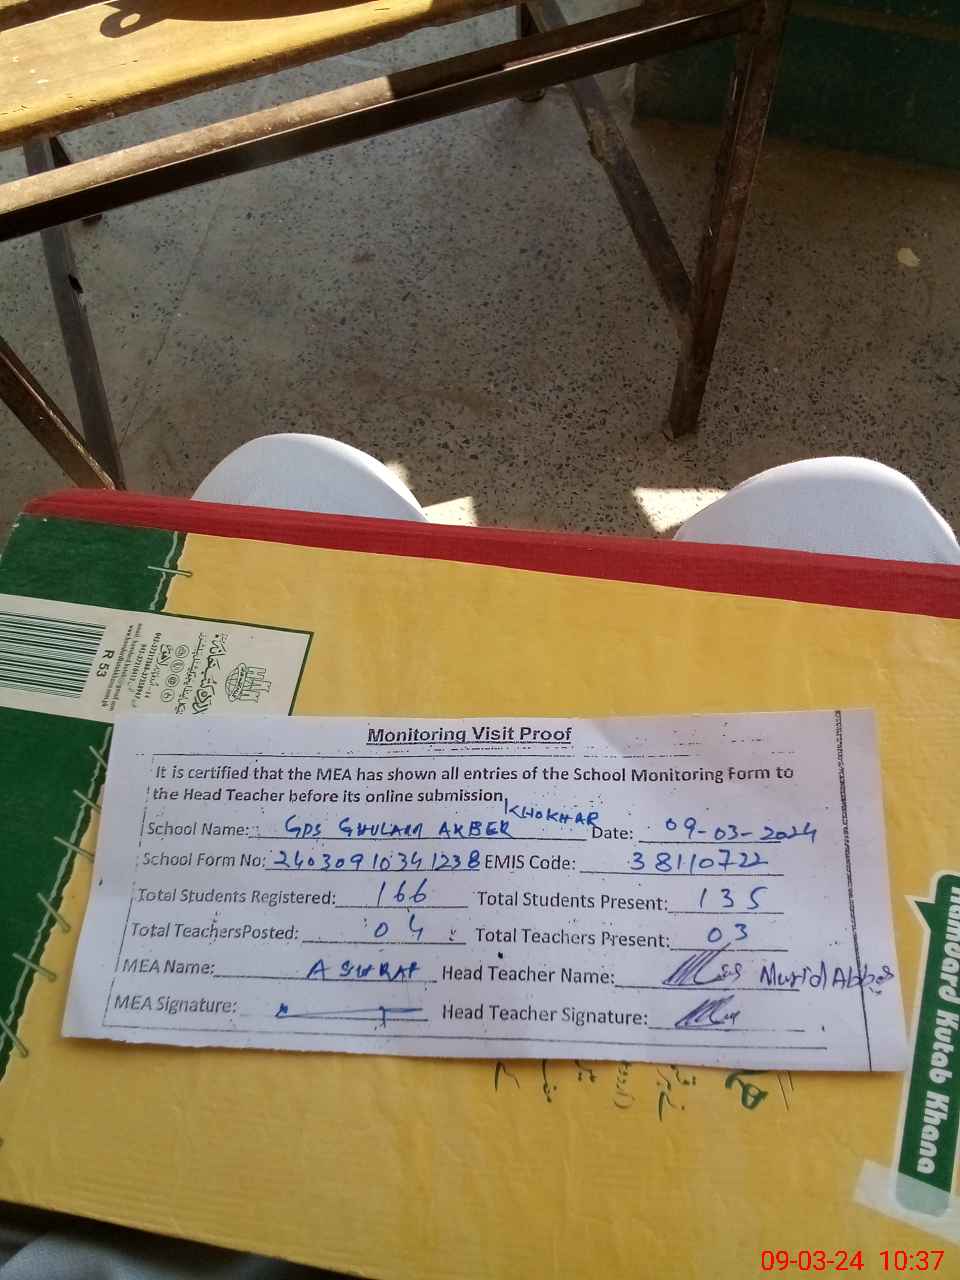 Monitoring Visit Proof
It is certified that the MEA has shown all entries of the School Monitoring Form to
the Head Teacher before its online submission
School Name: GPS GHULAM AKBER KHOKHAR Date: 09-03-2024
School Form No: 24030910341238 EMIS Code: 38110722
Total Students Registered: 166 Total Students Present: 135
Total TeachersPosted: 04 Total Teachers Present: 03
MEA Name: ASHRAF Head Teacher Name: Murid Abbas
MEA Signature: Head Teacher Signature:
R 53
Hamdard Kutab Khana
09-03-24 10:37